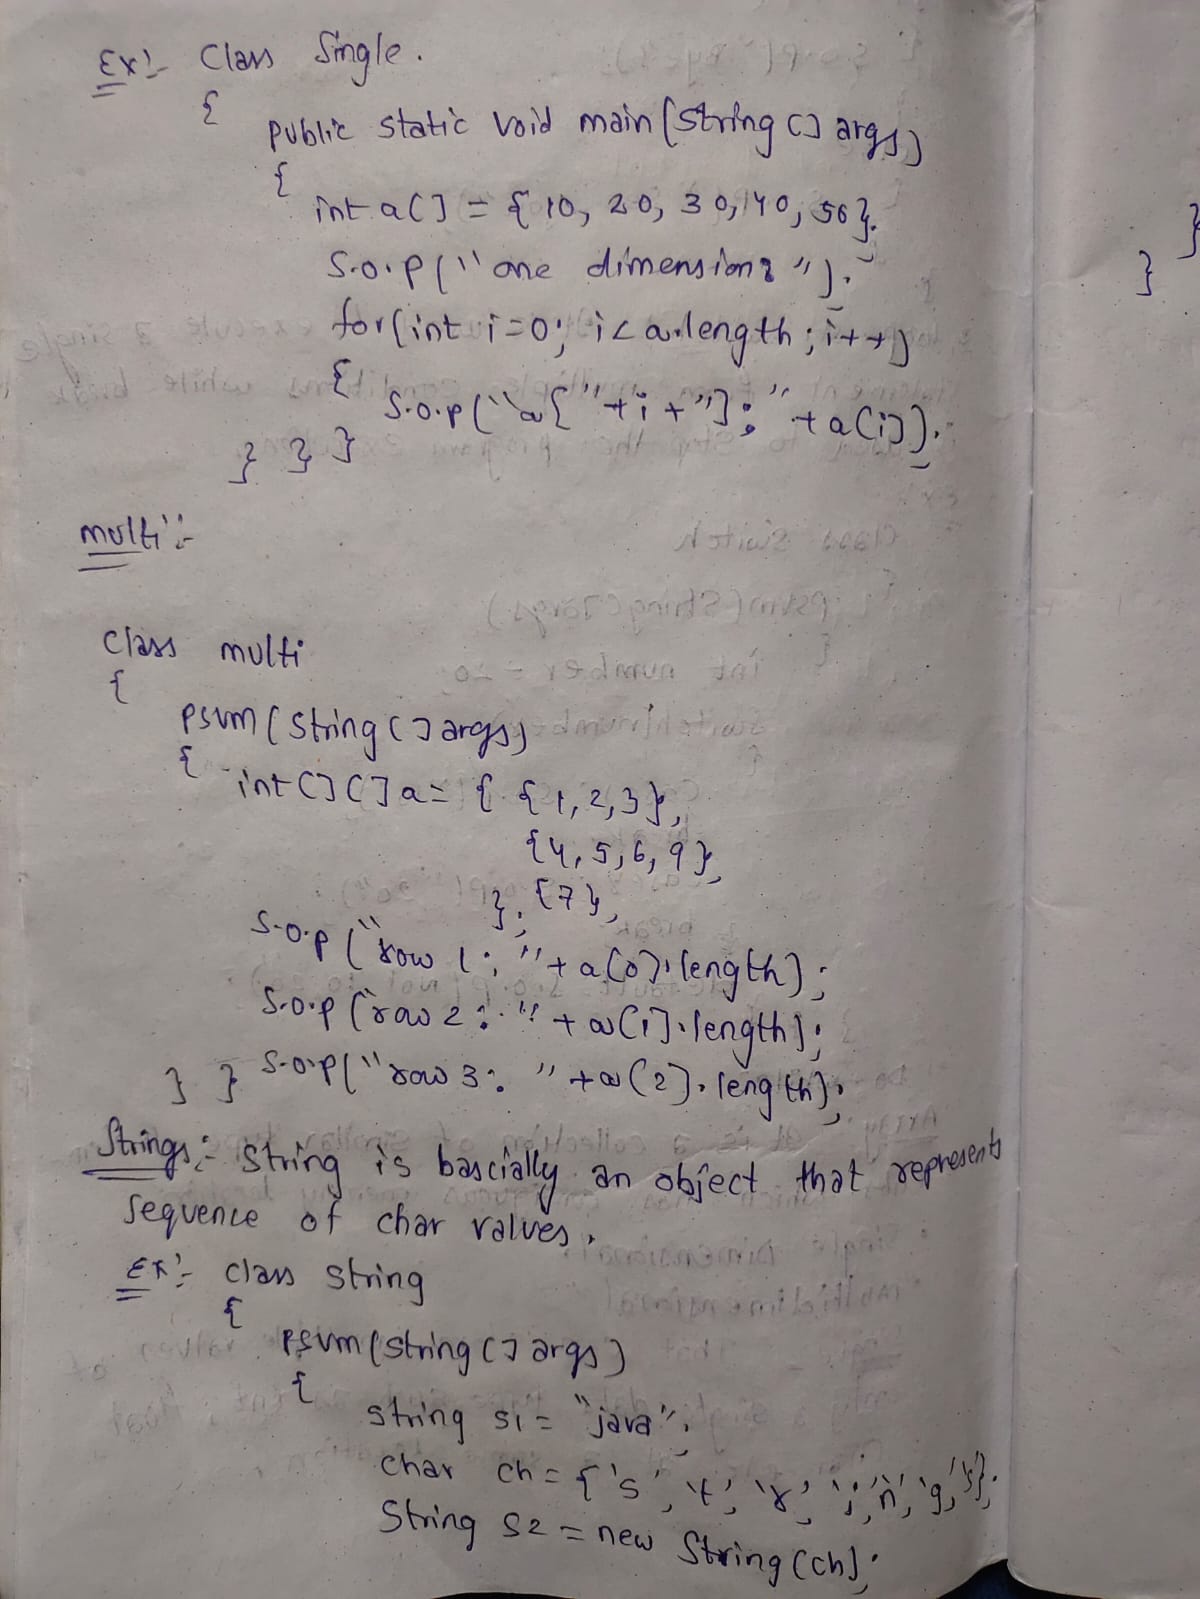 Ex:- Class Single.
{
public static void main(String[] args)
{
int a[] = { 10, 20, 30, 40, 50};
S.o.p("one dimension: ");
for(int i=0; i<a.length; i++)
{
S.o.p("a["+i+"]: "+a[i]);
} } }
multi:-
class multi
{
psvm(String[] args)
{
int[][] a= { {1,2,3},
{4,5,6,9},
{7},
};
S.o.p("row 1: "+a[0].length);
S.o.p("row 2: "+a[1].length);
S.o.p("row 3: "+a[2].length);
} }
Strings:- String is bascially an object that represents
sequence of char values.
Ex:- class string
{
psvm(string[] args)
{
string s1= "java";
char ch={'s','t','r','i','n','g','s'};
String s2=new String(ch);
}
}